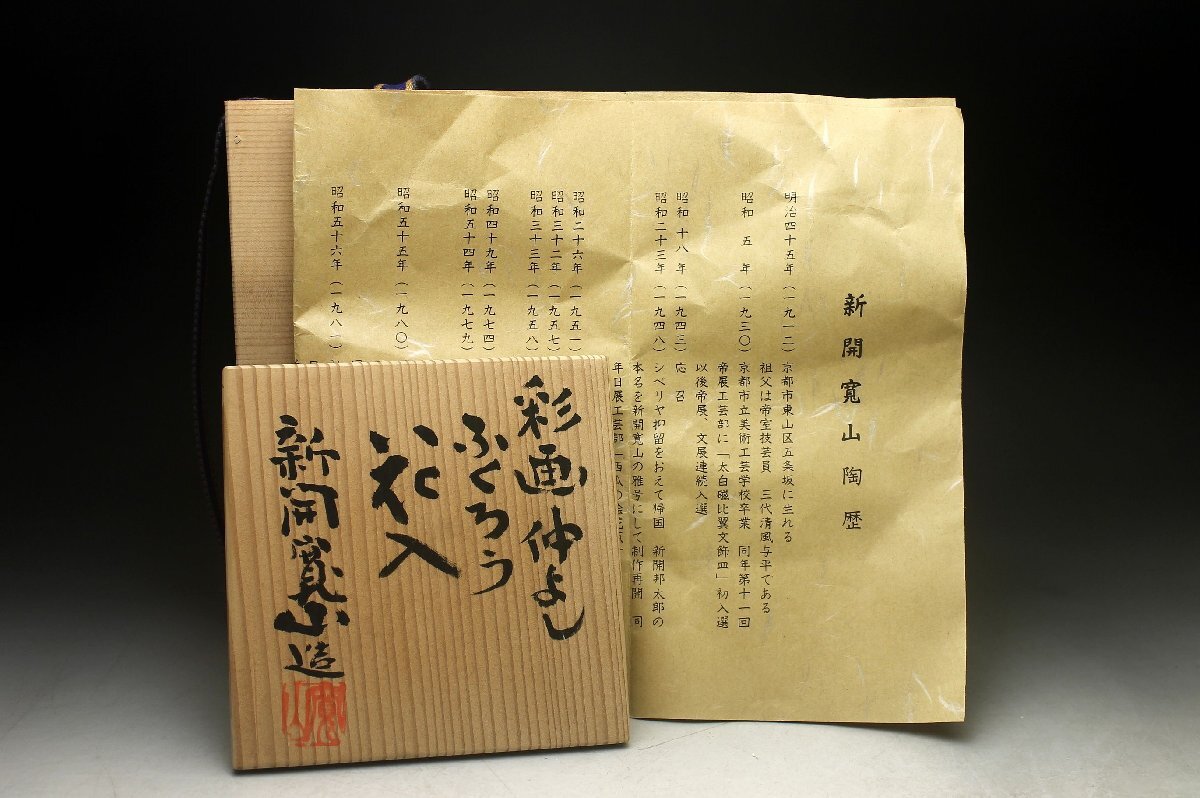 新開寛山陶歴
明治四十五年(一九一二)京都市東山区五条坂に生れる
祖父は帝室技芸員 三代清風与平である
昭和 五 年(一九三〇)京都市立美術工芸学校卒業 同年第十一回
帝展工芸部に「太白磁比翼文飾皿」初入選
以後帝展、文展連続入選
昭和 十八 年(一九四三)応 召
昭和二十三年(一九四八)シベリヤ抑留をおえて帰国 新開邦太郎の
本名を新開寛山の雅号にして制作再開 同
年日展工芸部
昭和二十六年(一九五一)
昭和三十二年(一九五七)
昭和三十三年(一九五八)
昭和四十九年(一九七四)
昭和五十四年(一九七九)
昭和五十五年(一九八〇)
昭和五十六年(一九八一)
彩画仲よし
ふくろう
花入
新開寛山造
寛山